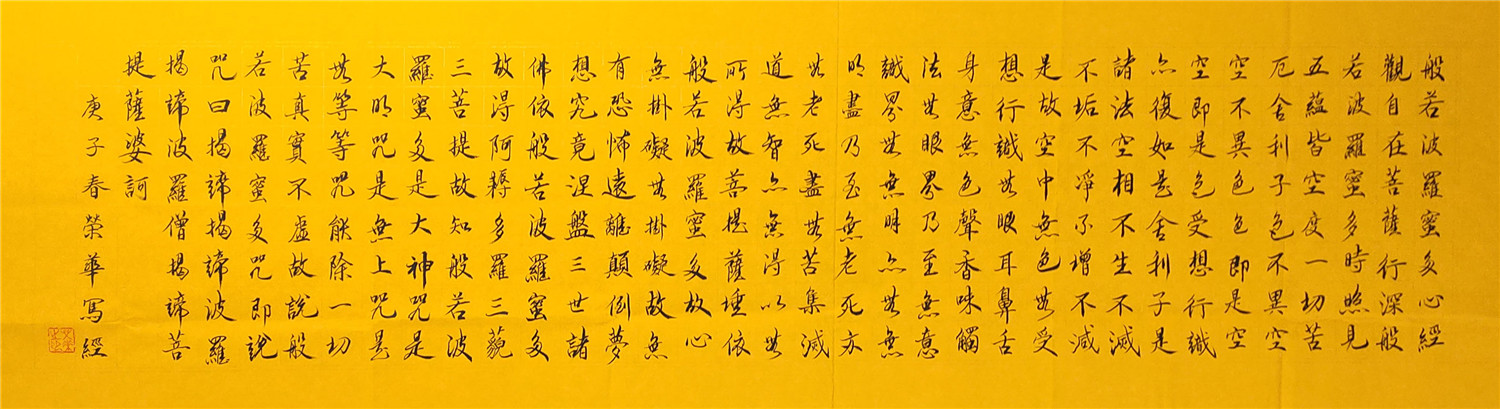 般若波羅蜜多心經
觀自在菩薩行深般
若波羅蜜多時照見
五蘊皆空度一切苦
厄舍利子色不異空
空不異色色即是空
空即是色受想行識
亦復如是舍利子是
諸法空相不生不滅
不垢不淨不增不減
是故空中無色無受
想行識無眼耳鼻舌
身意無色聲香味觸
法無眼界乃至無意
識界無無明亦無無
明盡乃至無老死亦
無老死盡無苦集滅
道無智亦無得以無
所得故菩提薩埵依
般若波羅蜜多故心
無掛礙無掛礙故無
有恐怖遠離顛倒夢
想究竟涅盤三世諸
佛依般若波羅蜜多
故得阿耨多羅三藐
三菩提故知般若波
羅蜜多是大神咒是
大明咒是無上咒是
無等等咒能除一切
苦真實不虛故說般
若波羅蜜多咒即說
咒曰揭諦揭諦波羅
揭諦波羅僧揭諦菩
提薩婆訶
庚子春榮華寫經